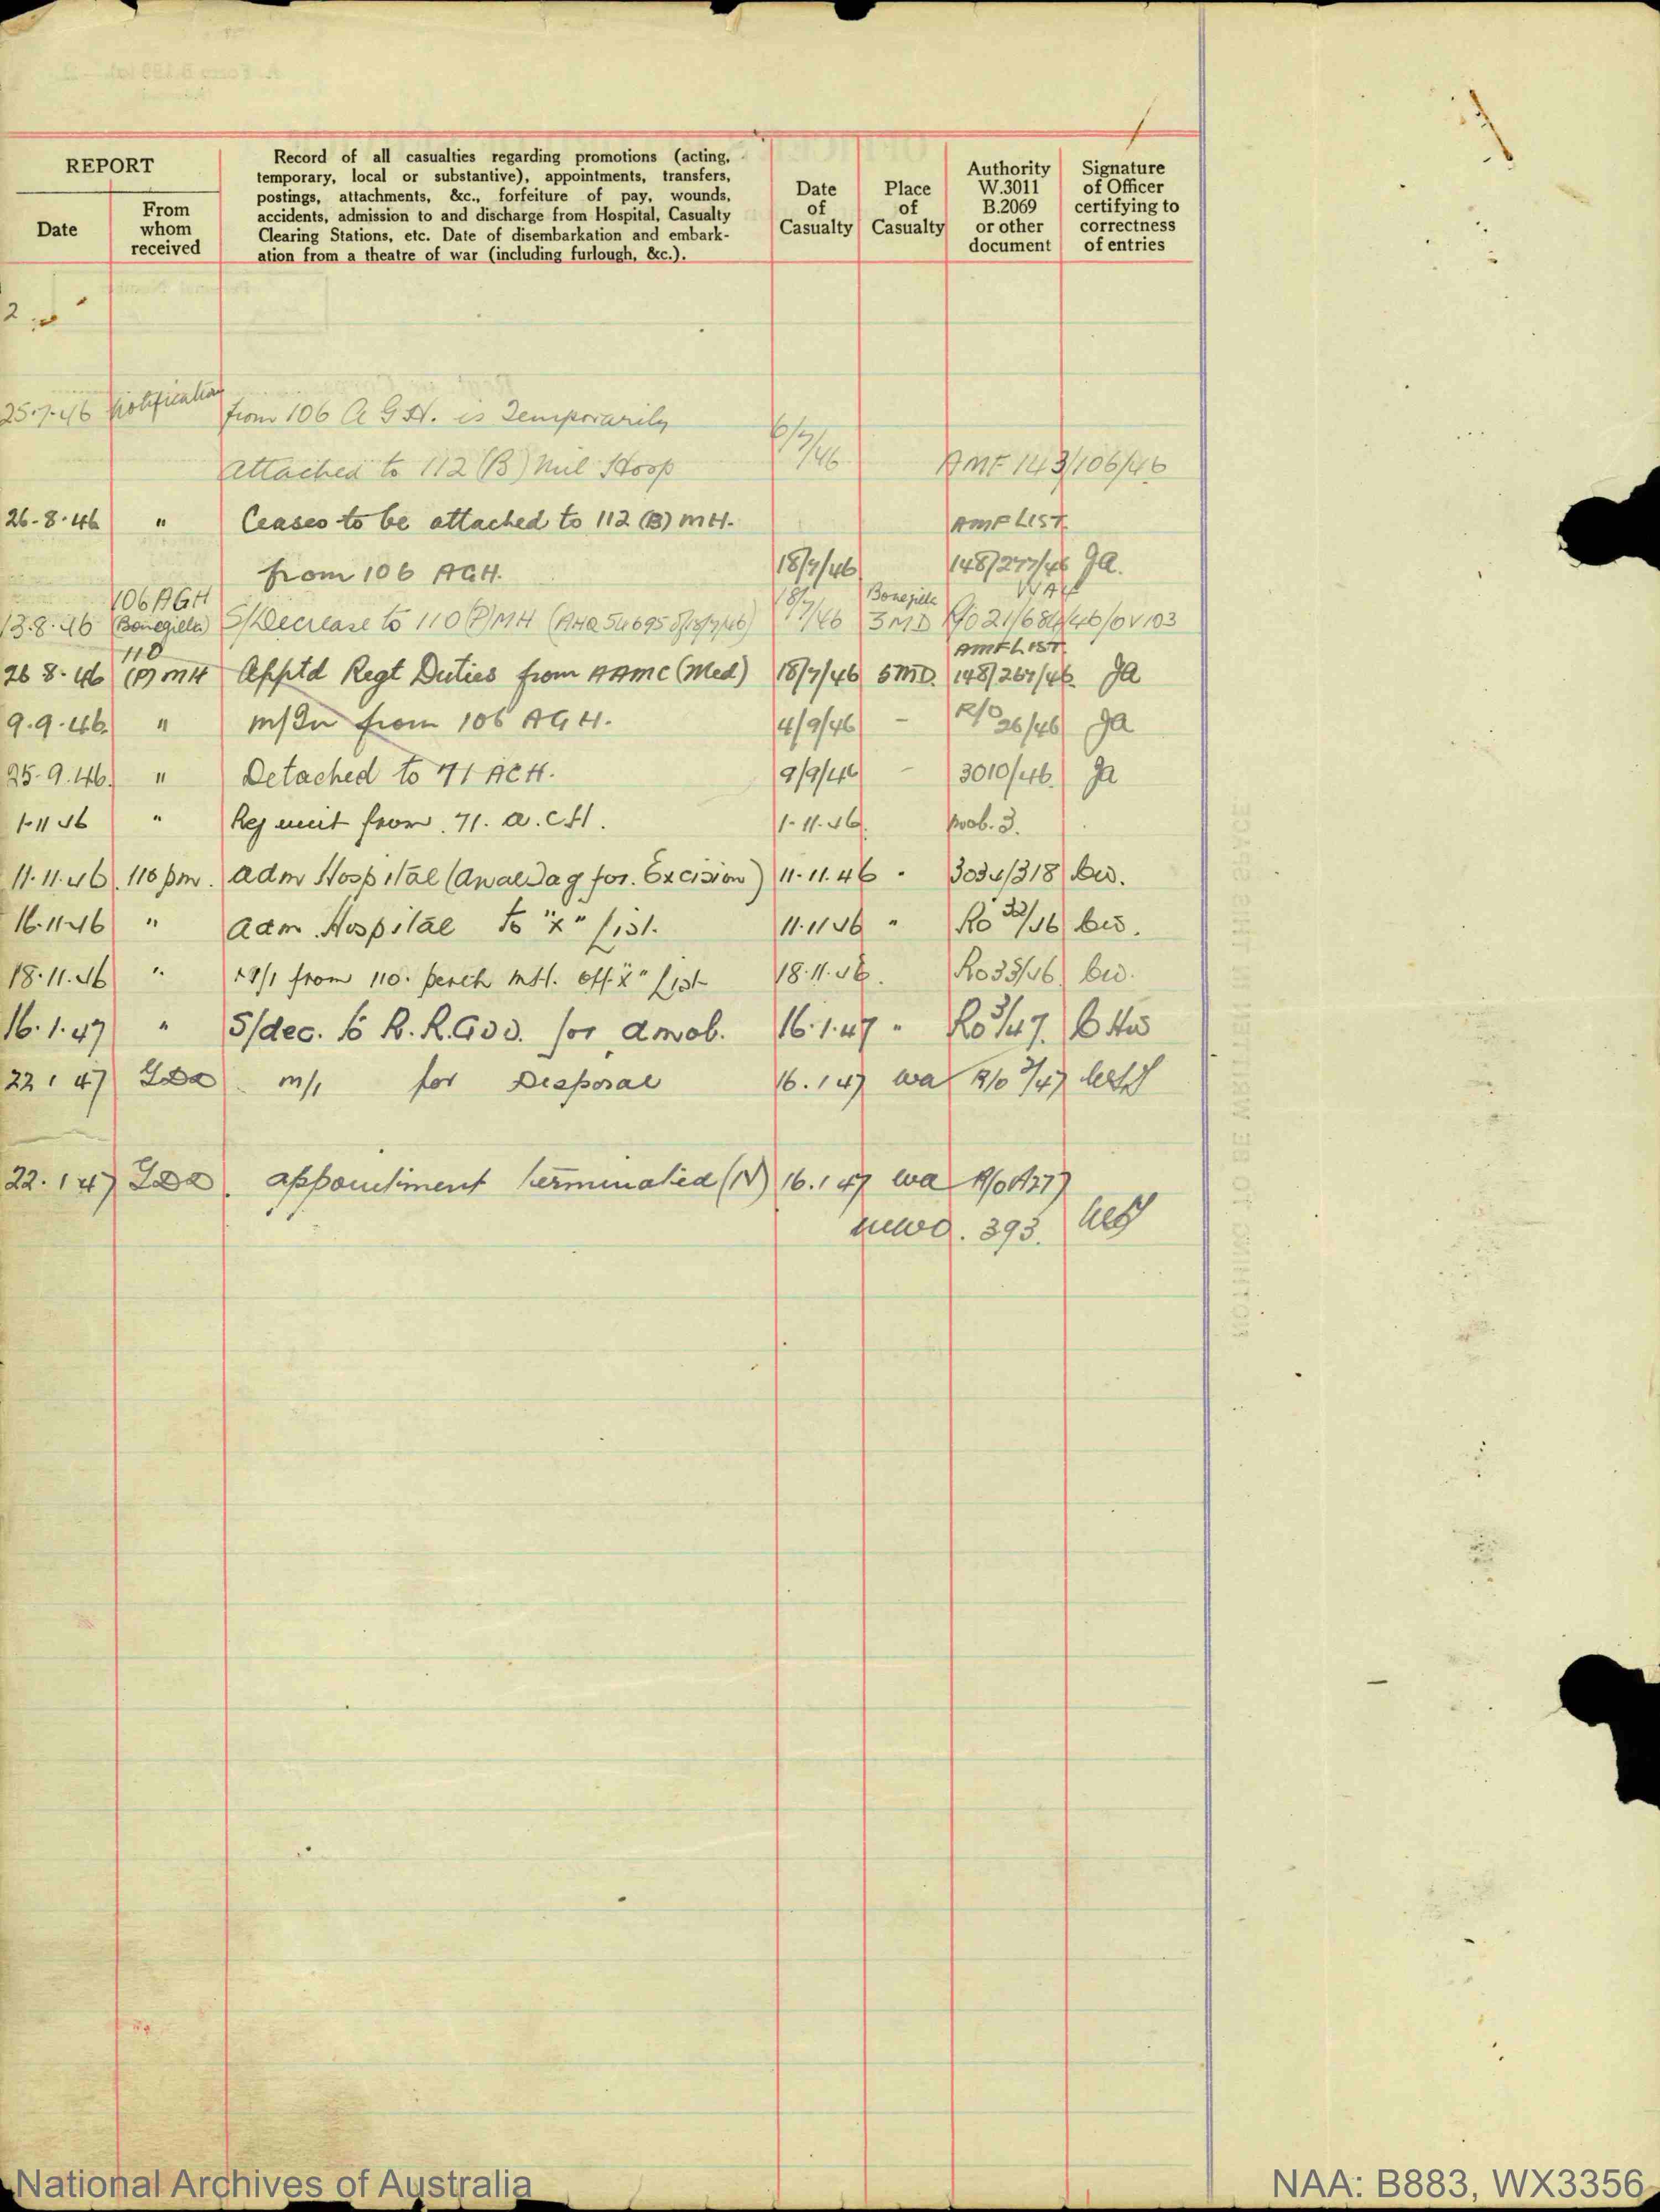 REPORT
Date
From
whom
received
Record of all casualties regarding promotions (acting,
temporary, local or substantive), appointments, transfers,
postings, attachments, &c., forfeiture of pay, wounds,
accidents, admission to and discharge from Hospital, Casualty
Clearing Stations, etc. Date of disembarkation and embark-
ation from a theatre of war (including furlough, &c.).
Date
of
Casualty
Place
of
Casualty
Authority
W.3011
B.2069
or other
document
Signature
of Officer
certifying to
correctness
of entries
2
25.7.46 Notification from 106 A G H. is Temporarily
Attached to 112 (B) Mil Hosp 6/7/46 AMF 143/106/46
26-8-46 " Ceases to be attached to 112 (B) MH. AMF LIST
from 106 AGH. 18/7/46 148/277/46 JA.
106 AGH 18/7 Bonegilla
13.8.46 (Bonegilla) S/Decrease to 110 (P) MH 3 MD
110 AMF LIST.
26 8. 46 (P) MH Apptd Regt Duties from AAMC (Med) 18/7/46 5MD. 148/267/46 JA
9.9.46. " M/In from 106 AGH. 4/9/46 - R/O 26/46 JA
25.9.46. " Detached to 71 ACH. 9/9/46 - 3010/46. JA
1-11 46 " Rej unit from. 71. a. C H. 1-11.46.
11.11.46. 110 pm. Adm Hospital (Anal Tag for. Excision) 11.11.46 - 3034/318
16.11.46 " Adm. Hospital to "X" list. 11.11 46 "
18.11.46 " from 110. Perth Mil. off "X" list 18.11.46. Ro 33/46
16.1.47 " S/dec. to for demob. 16.1.47 " Ro 3/47.
22 1 47 m/i for Disposal 16.1 47 wa R/o 3/47
22.1 47 appointment terminated (N) 16.1 47 wa
393.
NOTHING TO BE WRITTEN IN THIS SPACE
National Archives of Australia
NAA: B883, WX3356